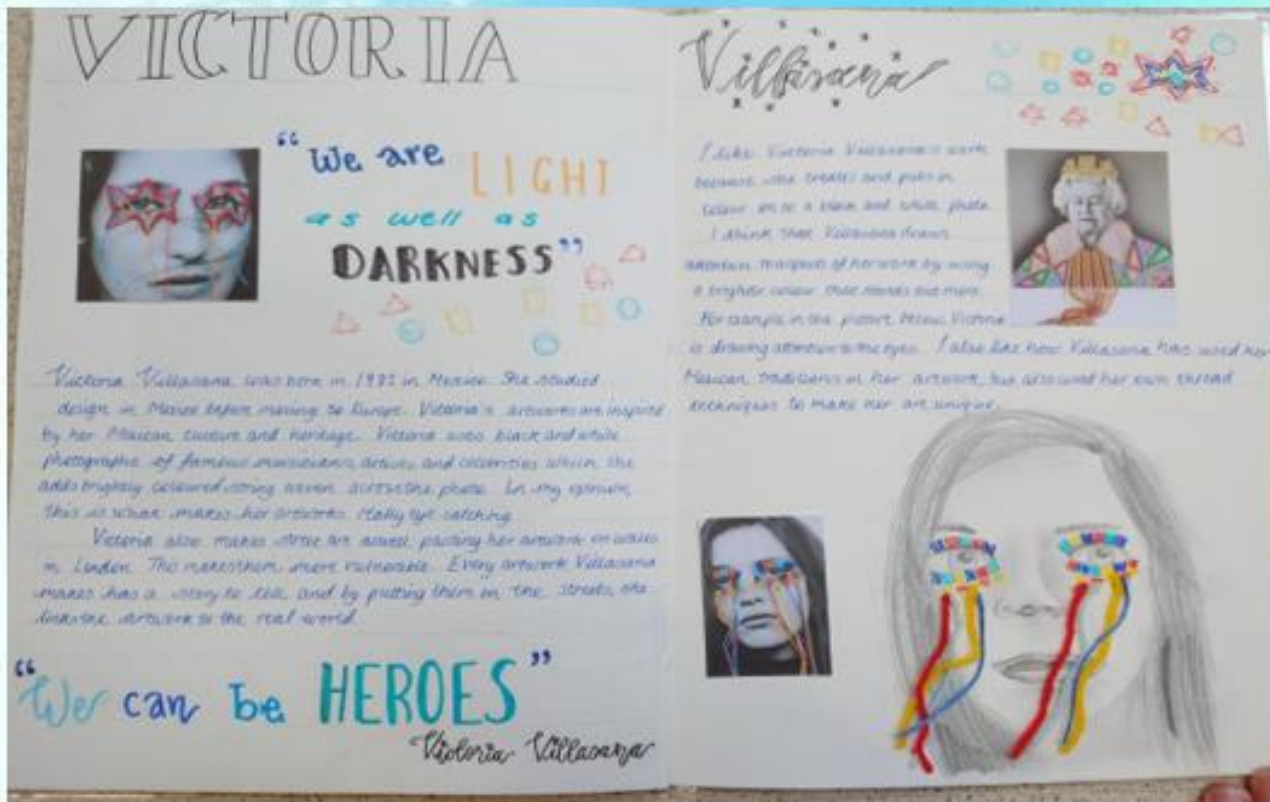 VICTORIA
"We are LIGHT
as well as
DARKNESS"
Victoria Villasana was born in 1982 in Mexico. She studied
design in Mexico before moving to Europe. Victoria's artworks are inspired
by her Mexican culture and heritage. Victoria uses black and white
photographs of famous musicians, artists and celebrities which she
adds brightly coloured string woven across the photo. In my opinion,
this is what makes her artworks really eye catching.
Victoria also makes street art aswell, pasting her artwork on walls
in London. This makes them more vulnerable. Every artwork Villasana
makes has a story to tell and by putting them on the streets, she
links the artwork to the real world.
"We can be HEROES"
Victoria Villasana
Villasana
I like Victoria Villasana's work
because she creates and puts in
colour on to a black and white photo
I think that Villasana draws
attention to aspects of her work by using
a brighter colour that stands out more.
For example in the picture below Victoria
is drawing attention to the eyes. I also like how Villasana has used her
Mexican traditions in her artwork, but also used her own thread
techniques to make her art unique.